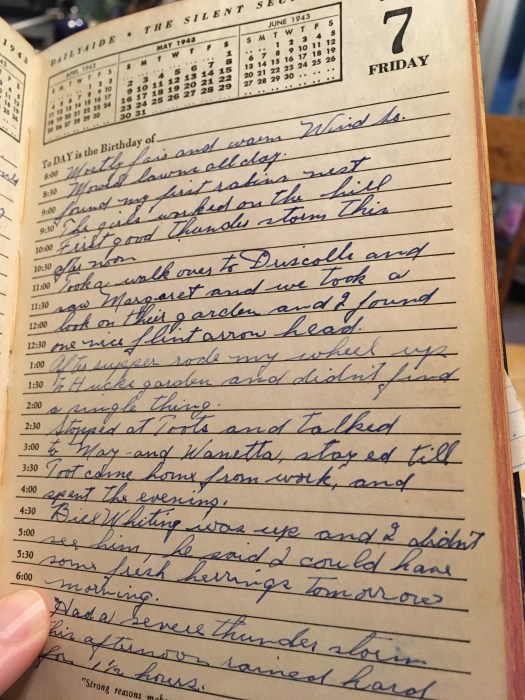 DAILYAIDE • THE SILENT SEC
1943
APRIL 1943
S M T W T F S
MAY 1943
S M T W T F S
1
2 3 4 5 6 7 8
9 10 11 12 13 14 15
16 17 18 19 20 21 22
23 24 25 26 27 28 29
30 31
JUNE 1943
S M T W T F S
1 2 3 4 5
6 7 8 9 10 11 12
13 14 15 16 17 18 19
20 21 22 23 24 25 26
27 28 29 30
7
FRIDAY
To DAY is the Birthday of
8:00 Mostly fair and warm Wind So.
8:30 Mowed lawns all day.
9:00 found my first robins nest
9:30 The girls worked on the hill
10:00 First good thunder storm this
10:30 after noon
11:00 Took a walk over to Driscolls and
11:30 saw Margaret and we took a
12:00 look on their garden and I found
12:30 one nice flint arrow head.
1:00 After supper rode my wheel up
1:30 to Hucks garden and didn't find
2:00 a single thing.
2:30 Stopped at Toots and talked
3:00 to May and Wanetta, stayed till
3:30 Toot came home from work, and
4:00 spent the evening.
4:30 Bill Whiting was up and I didn't
5:00 see him, he said I could have
5:30 some fresh herrings tomorrow
6:00 morning.
Had a severe thunder storm
this afternoon rained hard
for 1½ hours.
"Strong reasons make